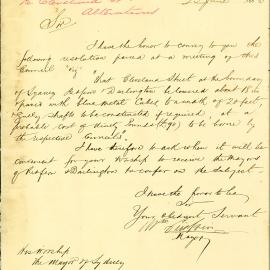 re Cleveland St
Alterations
Sir
I have the honor to convey to you the
following resolution passed at a meeting of this
Council Viz "That Cleveland Street at the boundary
of Sydney Redfern & Darlington be lowered about 18 in
paved with blue metal Cubes to a width of 20 feet,
Gully shafts to be constructed if required, at a
probable cost of ninety Pounds (£90) to be borne by
the respective Councils"
I have therefore to ask when it will be
convenient for your Worship to receive the Mayors
of Redfern & Darlington to confer on the subject
I have the honor to be
Sir
Your obedient Servant
Mayor
His Worship
The Mayor of Sydney